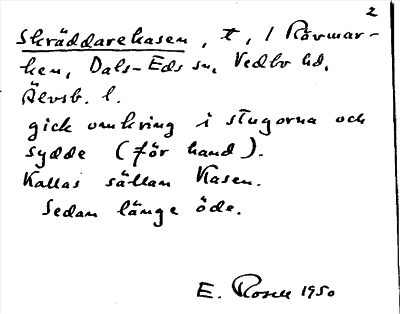 2
Skräddarekasen, t, i Rävmar-
ken, Dals-Eds sn, Vedbo hd,
Älvsb. l.
gick omkring i stugorna och
sydde (för hand).
Kallas sällan Kasen.
Sedan länge öde.
E. Rosell 1950